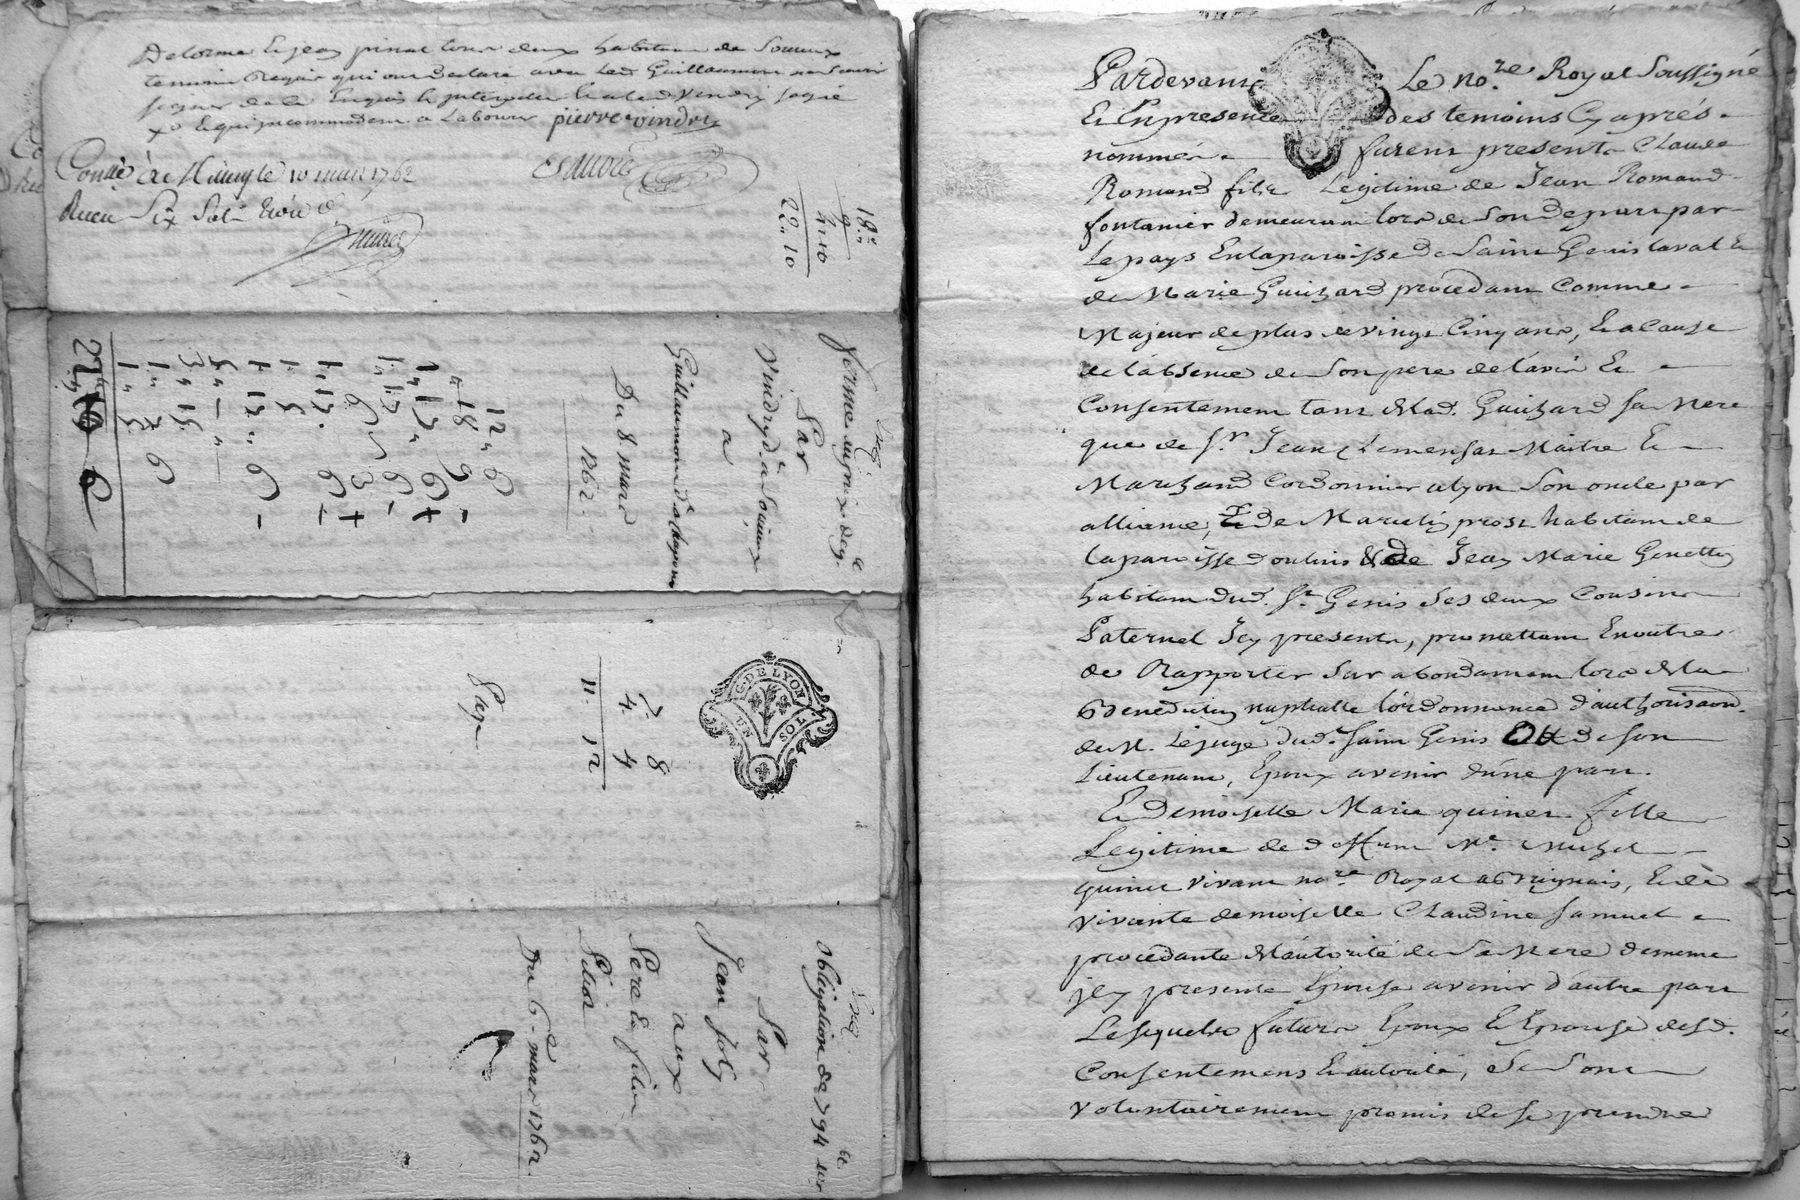 Delorme & jean pinat tous deux habitans de Soucieux
temoins Requis qui ont Declaré avec led. Guillaumon ne Scavoir
signer de ce Enquis & Interpelles & a led. Vindry signé
pierre vindry
Conllé à Millery le 10 mars 1762
Receu Six Sols
18"
9
4"10
22"10
ferme
Par
Vindry de Soucieux
a
Guillaumon
Du 8 mars
1762
12" 6
" 18 9 -
1" 17 6 +
1" 17" 6 -
6 3 +
1" 12" 6 +
1" 5
1" 12" 6 -
5" - "
3" 15
1" 2 6
1" 5
27" 19 6
G. DE LYON
UN SOL
7" 8
4" 4
11" 12
obligation de 794 ll
Par
Jean Joly
aux
Pere & filion
Du 6e mars 1762
Pardevant Le nore. Royal Soussigné
Et En presence des temoins Cy aprés
nommés furent presents Claude
Romand fils Legitime de Jean Romand
fontanier demeurant lors de Son depart par
Le pays En la paroisse de Saint Genis laval &
de Marie Guizard procedant Comme
Majeur de plus de vingt Cinq ans, Et a Cause
de l'absence de Son pere de l'avis Et
Consentement tant de Lad. Guizard Sa Mere
que de Sr. Jean Clemensas Maitre Et
Marchand Cordonnier a lyon Son oncle par
alliance, & de Marcelin prost habitant de
la paroisse doulins & de Jean Marie Genettes
habitant dud. St. Genis Ses deux Cousins
Paternel Icy presents, promettant En outre
de Rapporter Sur abondamment lors de la
Benediction nuptialle l'ordonnance d'authorisaon.
de M. Le juge dud. Saint Genis Ou de son
Lieutenant, Epoux avenir d'une part.
Et Demoiselle Marie quinet fille
Legitime de deffunt Me. Michel
quinet vivant nore. Royal a Brignais, Et de
vivante demoiselle Claudine Samuel
procedante de l'autorité de Sa Mere de meme
Icy presente Epouse avenir d'autre part
Lesquels futurs Epoux & Epouse desd.
Consentemens & autorité, Se Sont
volontairement promis de Se prendre